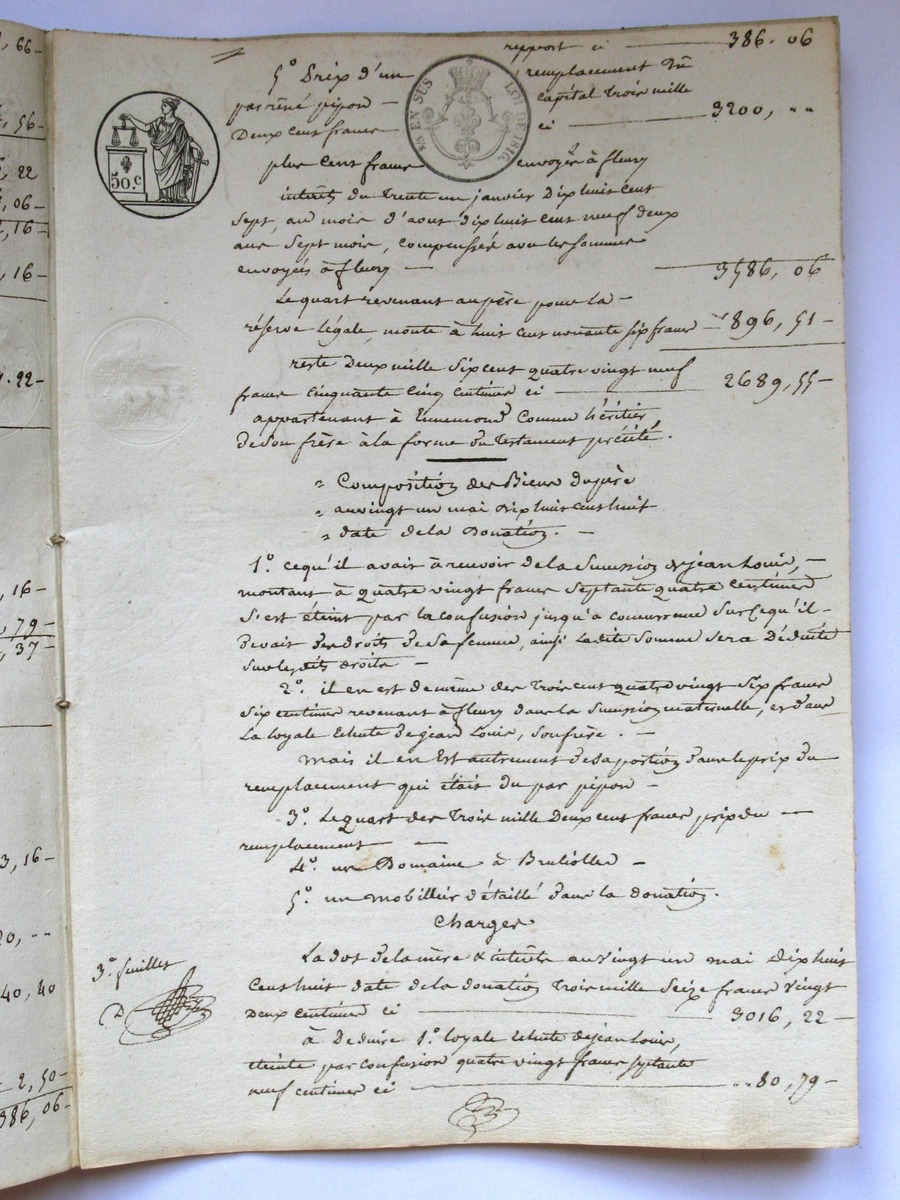 rapport ci 386.06
5º. Prix d'un remplacement dû
par réné pipon — capital trois mille
Deux cent francs ci 3200, ""
plus cent francs envoyés à fleury
intérêts du trente un janvier Dix huit cent
sept, au mois d'aout dix huit cent neuf deux
ans sept mois, compensés avec les sommes
envoyées à fleury — 3586, 06
Le quart revenant au père pour la —
réserve légale, monte à huit cent nonante six francs 896, 51 —
reste Deux mille Six cent quatre vingt neuf
francs cinquante cinq centimes ci 2689, 55 —
appartenant à Ennemond Comme héritier
de son frère à la forme du testament précité.
" Composition des Biens du père
" au vingt un mai dix huit cent huit
" date de la Donation. —
1º. ce qu'il avait à recevoir de la Succession de jean Louis, —
montant à quatre vingt francs Septante quatre centimes
S'est éteint par la confusion jusqu'à concurrence Sur ce qu'il —
Devait des droits de sa femme, ainsi la dite Somme sera Déduite
sur les dits droits —
2º. il en est de même des trois cent quatre vingt six francs
Six centimes revenant à fleury dans la Succession maternelle, et dans
La loyale échute de jean Louis, son frère. —
mais il en Est autrement de sa portion dans le prix du
remplacement qui était du par pipon —
3º. Le quart des trois mille Deux cent francs prix du —
remplacement —
4º. un Domaine à Bruliolles —
5º. un mobillier détaillé dans la donation.
Charges
La dot de la mère & intérêts au vingt un mai Dix huit
Cent huit date de la donation trois mille Seize francs vingt
Deux centimes ci 3016, 22 —
à Déduire 1º. loyale échute de jean Louis,
éteinte par confusion quatre vingt francs septante
neuf centimes ci "" 80, 79 —
3º. feuillet
50.C
EN SUS
LOI DE
, 66
, 56 —
, 22
, 06 —
, 16 —
, 16 —
. 22 —
, 16 —
, 79 —
, 37 —
3, 16 —
20, ""
40, 40
2, 50 —
386, 06 —